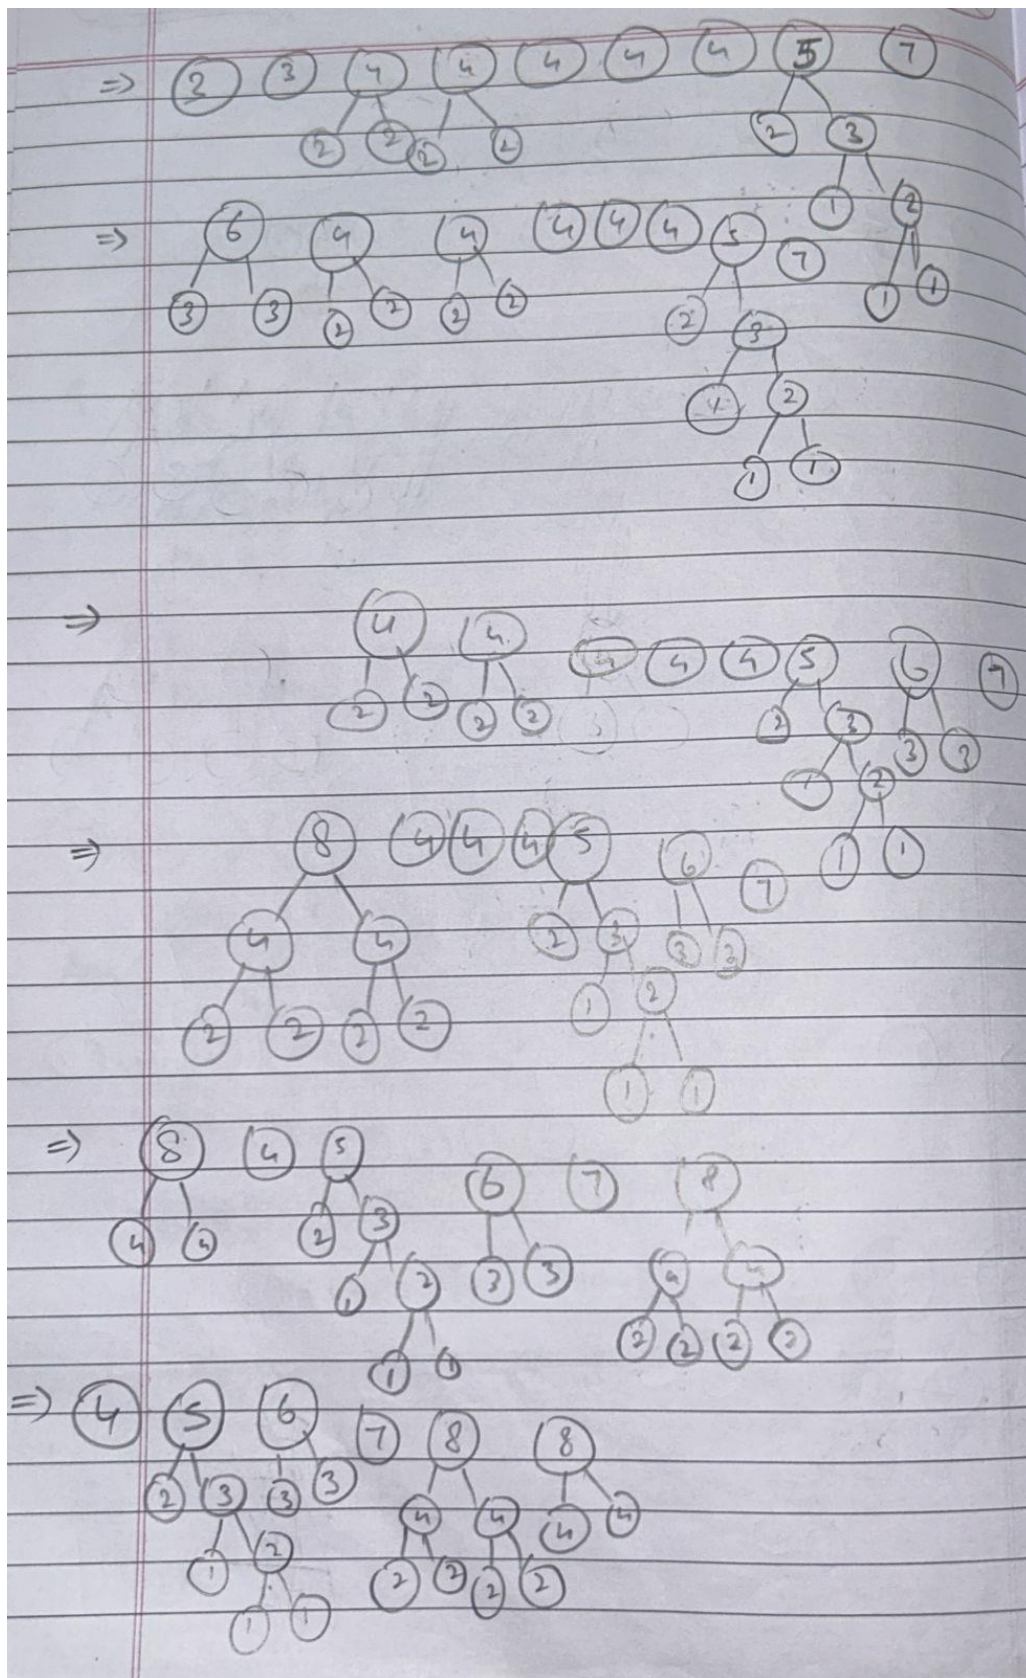 ⇒ 3 3 4 4 4 4 4 5 7
2 2 2 2 2 3
1 2
1 1
⇒ 6 4 4 4 4 4 5 7
3 3 2 2 2 2 2 3
1 2
1 1
⇒ 4 4 4 4 4 5 6 7
2 2 2 2 2 3 3 3
1 2
1 1
⇒ 8 4 4 4 5 6 7
4 4 2 3 3 3
2 2 2 2 1 2
1 1
⇒ 8 4 5 6 7 8
4 4 2 3 3 3 4 4
1 2 2 2 2 2
1 1
⇒ 4 5 6 7 8 8
2 3 3 3 4 4 4 4
1 2 2 2 2 2
1 1